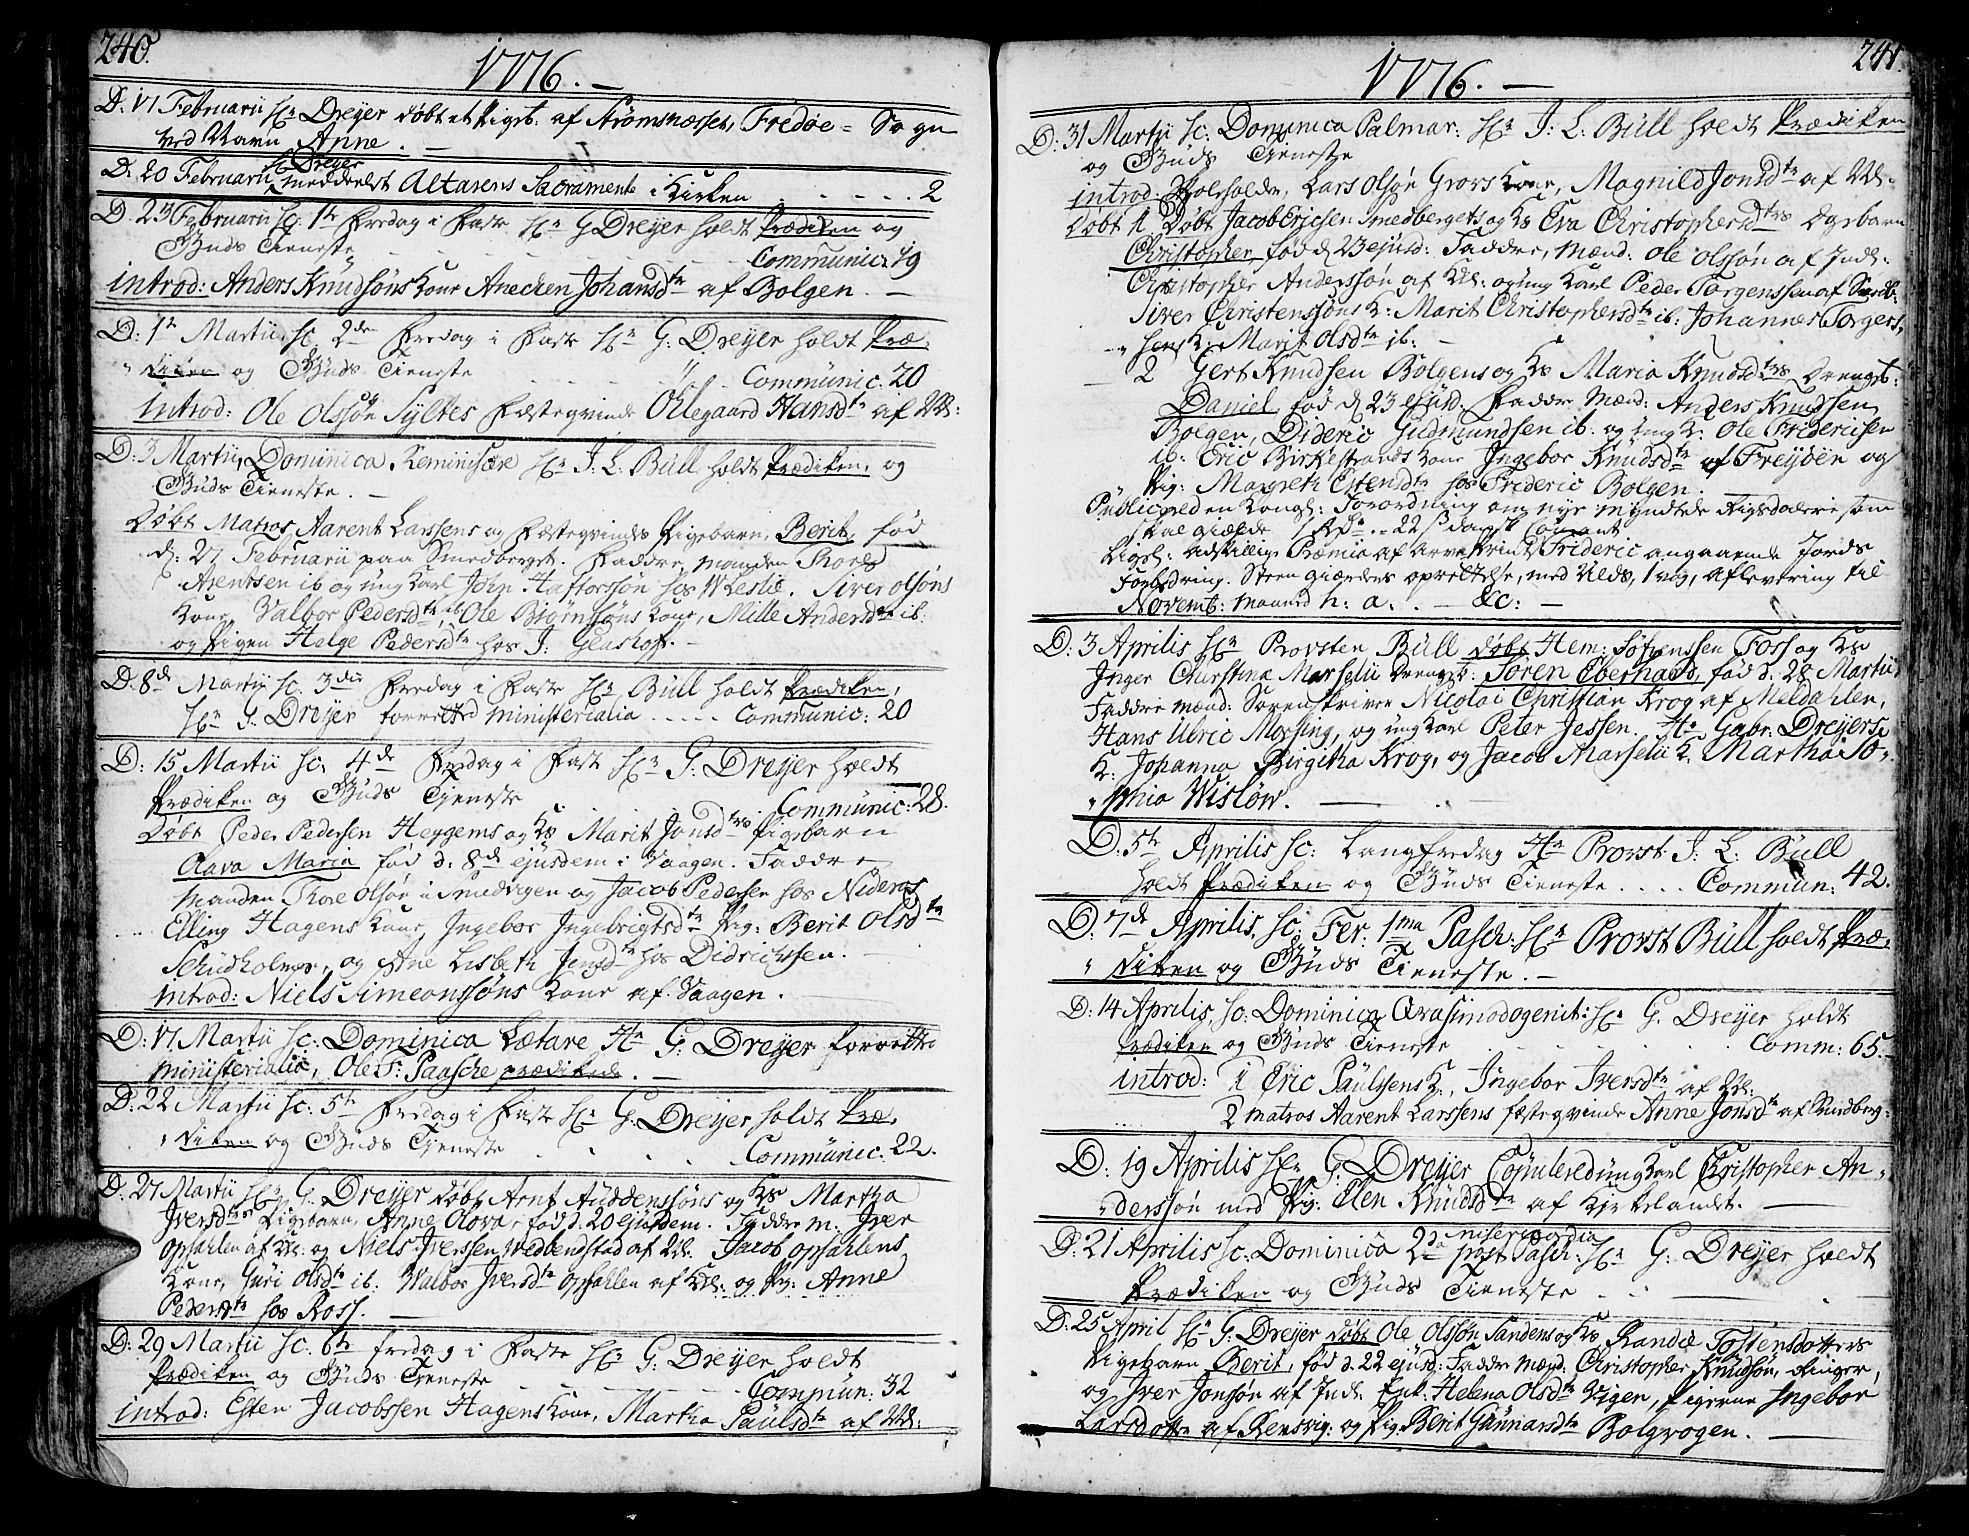 240.
1776. –
D. 17 Februarii Hr Dreyer døbt et Pigeb: af Strømsnæsset, Fredøe = Sogn
ved Navn Anne. –
D. 20 Februarii Hr Dreyer meddeelet Altarens Sacramente i Kirken . . . . . . 2
D. 23 Februarii sc: 1te Fredag i Faste Hr G Dreyer holdt Prædiken og
Guds Tieneste . . . Communic: 19
introd: Anders Knudsøns Kone Anecken Johansdtr af Bolgen. –
D: 1te Martii sc. 2den Fredag i Faste Hr G: Dreyer holdt Præ,
diken og Guds Tieneste . . . Communic. 20
introd: Ole Olssøn Syltes Fæstegvinde Ollegaard Hansdtr af Ml:
D. 3 Martii, Dominica Reminiscere Hr J. L. Bull holdt Prædiken, og
Guds Tieneste. –
Døbt Matros Aarent Larssens og Fæstegvindes Pigebarn, Berit, fød
d. 27 Februarii paa Smedberget. Faddre, manden Thoer
Arentsen ib og ung karl John Haftorssøn hos W Leslie. Siver Olsøns
Kone, Valbor Pedersdtr ib, Ole Bjørnsøns Kone, Mille Andersdtr ib:
og Pigen Helge Pedersdtr hos J: Glashoff. –
D. 8de Martii sc. 3die Fredag i Faste Hr Bull holdt Prædiken,
Hr G. Dreyer forretted ministerialia . . . . . Communic: 20
D: 15 Martii sc. 4de Fredag i Faste Hr G: Dreyer holdt
Prædiken og Guds Tieneste . . . Communic: 28.
Døbt Peder Pedersen Heggems og Ks Marit Jonsdtrs Pigebarn
Aava Maria fød d. 8de ejusdem i Vaagen. Faddre
manden Thore Olsøn i Smedvigen og Jacob Pedersen hos Nideros
Elling Hagens Kone, Ingebor Ingebrigtsdtr Pig: Berit Olsdtr
Schudholmer, og Ane Lisbeth Jensdtr hos Didrichsen.
introd: Niels Simeonssøns Kone af Vaagen.
D: 17 Martii sc: Dominica Lætare Hr G: Dreyer forretted
ministerialia, Ole F: Paasche prædikede. –
D: 22 Martii sc: 5te Fredag i Faste Hr G: Dreyer holdt Præ,
diken og Guds Tieneste . . . Communic. 22.
D. 27 Martii Hr G: Dreyer døbt Arnt Auddenssøns og Ks Martha
Iversdtrs Pigebarn, Anne Olova, fød d. 20 ejusdem. Faddre M: Iver
Opsahlen af Kl: og Niels Iverssen Vedlendstad af Ml. Jacob Opsahlens
Kone, Guri Olsdtr ib. Walbor Iversdtr Opsahlen af Kl: og Pig: Anne
Pedersdtr hos Ross. –
D: 29 Martii sc. 6te fredag i Faste Hr G: Dreyer holdt
Prædiken og Guds Tieneste . . . Commun: 32
introd: Esten Jacobssen Hagens Kone, Martha Paulsdtr af Ml:
241.
1776. –
D: 31 Martii sc: Dominica Palmar: Hr J: L: Bull holdt Prædiken
og Guds Tieneste
introd: Lars Olsøn Grovs Kone, Magnild Jonsdtr af Ml.
Døbt 1 Døbt Jacob Ericsen Smedbergets og Ks Eva Christophersdtrs
Christopher, fød d 23 ejusd: Faddre, Mænd: Ole Olssøn af Indl:
Christopher Anderssøn af Kl: og ung Karl Peder Torgenssen af Smedb:
Siver Christenssøns K: Marit Christophersdtr ib: Johannes Torgers,
sens K: Marit Olsdtr ib: –
2 Gert Knudsen Bolgens og Ks Maria Knudsdtrs Drengeb:
Daniel, fød d 23 ejusd. Faddre Mænd: Anders Knudsen
Bolgen, Dideric Gudmundsen ib. og ung K: Ole Fridericsen
ib: Eric Birkestrands Kone Ingebor Knudsdtr af Freydøen og
Pig: Margreth Estensdtr hos Frideric Bolgen.
Publicered en Kongl: Forordning om nye myndtede Rigsdalere som
skal gielde 1 Rdr . . 22 s dansk Courant
Ligel: adskillige Præmia af Arve Printz Frideric angaaende Jords
Forbedring. Steen gierders oprettelse, med Ulds, 1 vog, Aflevering til
Novemb: Maaned h: a. . – &c: –
D: 3 Aprilis Hr Provsten Bull døbt Hem: Søfrenssen Foss og Ks
Inger Christina Marselii Drengeb: Søren Eberhard, fød d. 28 Martii
Faddre mænd: Sorenskriver Nicolai Christian Krog af Meldahlen,
Hans Ulric Mossing, og ung karl Peter Jessen. Hr Gabr: Dreyers
K: Johanna Birgitha Krog, og Jacob Marselii K. Martha So,
phia Wisløw. –
D: 5te Aprilis sc: Langfredag Hr Provst J. L: Bull
holdt Prædiken og Guds Tieneste . . . . Commun: 42.
D: 7de Aprilis, sc: Fer: 1ma Pasch: Hr Provst Bull holdt Præ,
diken og Guds Tieneste. –
D: 14 Aprilis, sc: Dominica Qvasimodogenit: Hr G. Dreyer holdt
Prædiken og Guds Tieneste . . . Comm: 65. –
introd: 1 Eric Paulssens K:, Ingebor Iversdtr af Ml:
2 Matros Aarent Larssens fæstegvinde Anne Jonsdtr af Smedberg:
D: 19 Aprilis Hr G: Dreyer Copulered ung karl Christopher An,
derssøn med Pig. Elen Knudsdtr af Kirkelandet. –
D: 21 Aprilis sc: Dominica 2da post Pasch: misericordia Hr G: Dreyer holdt
Prædiken og Guds Tieneste . –
D: 25 April Hr G: Dreyer døbt Ole Olssøn Sandens og Ks Randie Tostensdotters
Pigebarn Berit, fød d. 22 ejusd: Faddre Mænd: Christopher Knudsøn, Ringer,
og Iver Jonsøn af Indl: Enk: Helena Olsdtr Vigen, Pigerne Ingebor
Larsdotter af Rensvig: og Pig Berit Gunnarsdtr Bolgvogen. –